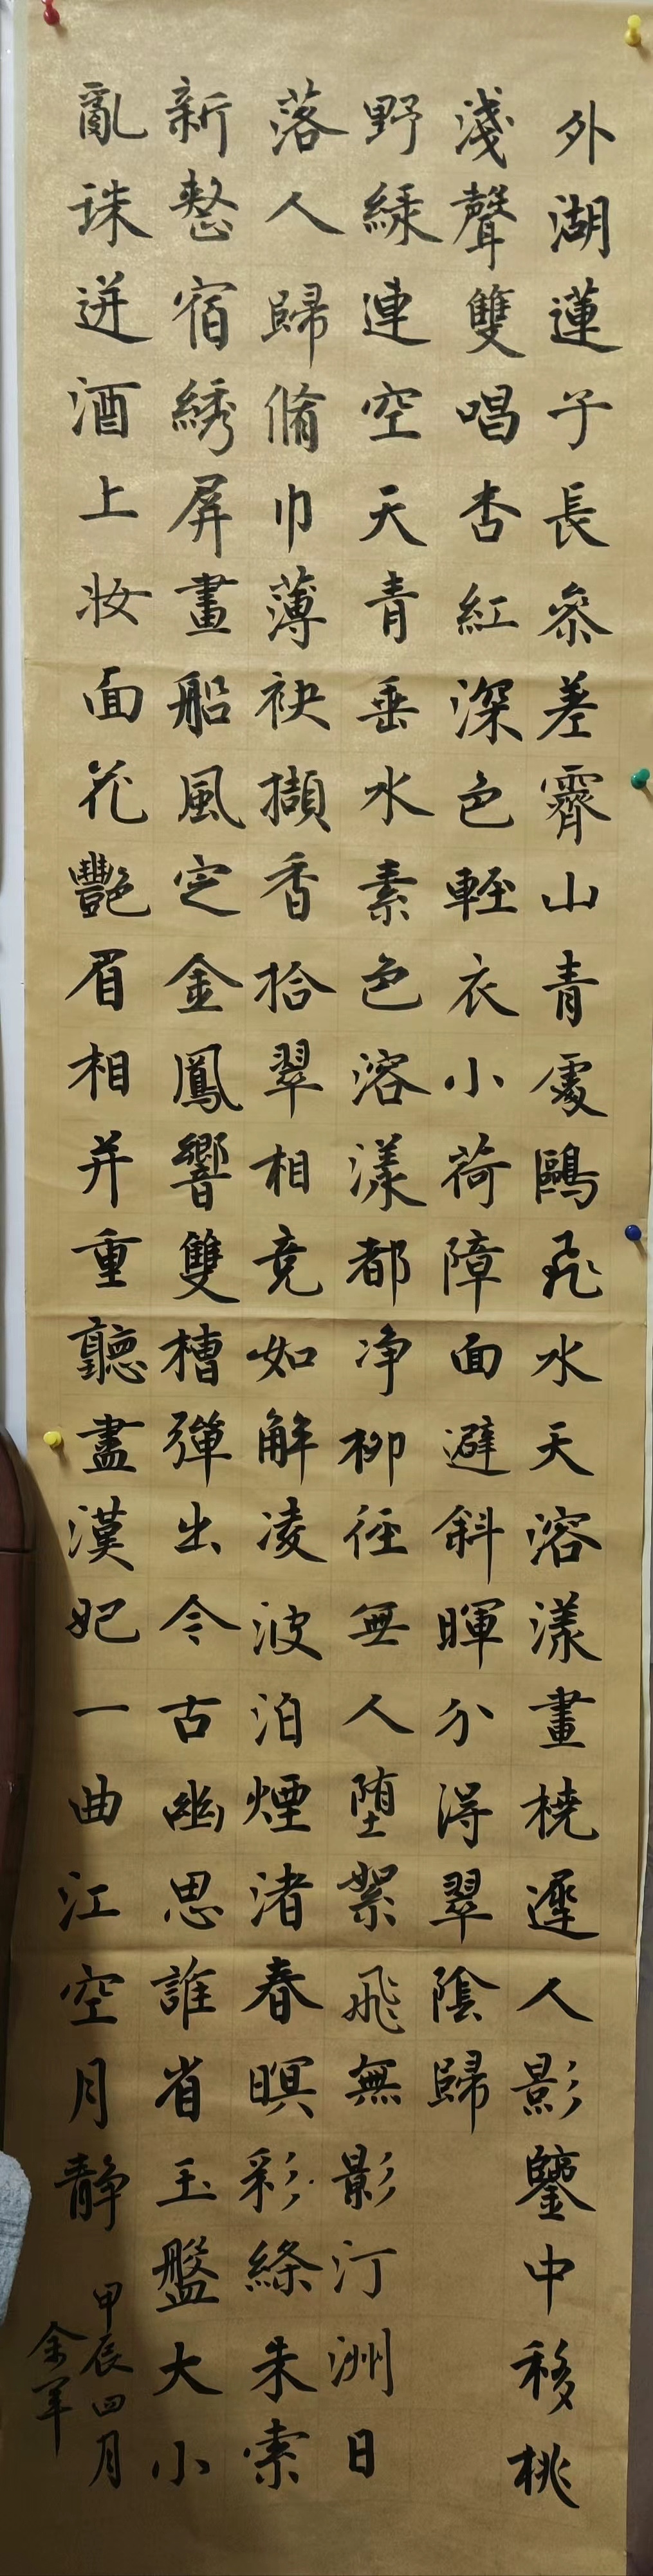 外湖蓮子長參差霽山青處鷗飛水天溶漾畫橈遲人影鑒中移桃
淺聲雙唱杏紅深色輕衣小荷障面避斜暉分得翠陰歸
野綠連空天青垂水素色溶漾都净柳徑無人堕絮飛無影汀洲日
落人歸脩巾薄袂擷香拾翠相竞如解凌波泊煙渚春暝彩絛朱索
新整宿綉屏畫船風定金鳳響雙槽彈出今古幽思誰省玉盤大小
亂珠迸酒上妝面花艷眉相并重聽盡漢妃一曲江空月靜
甲辰四月
余軍